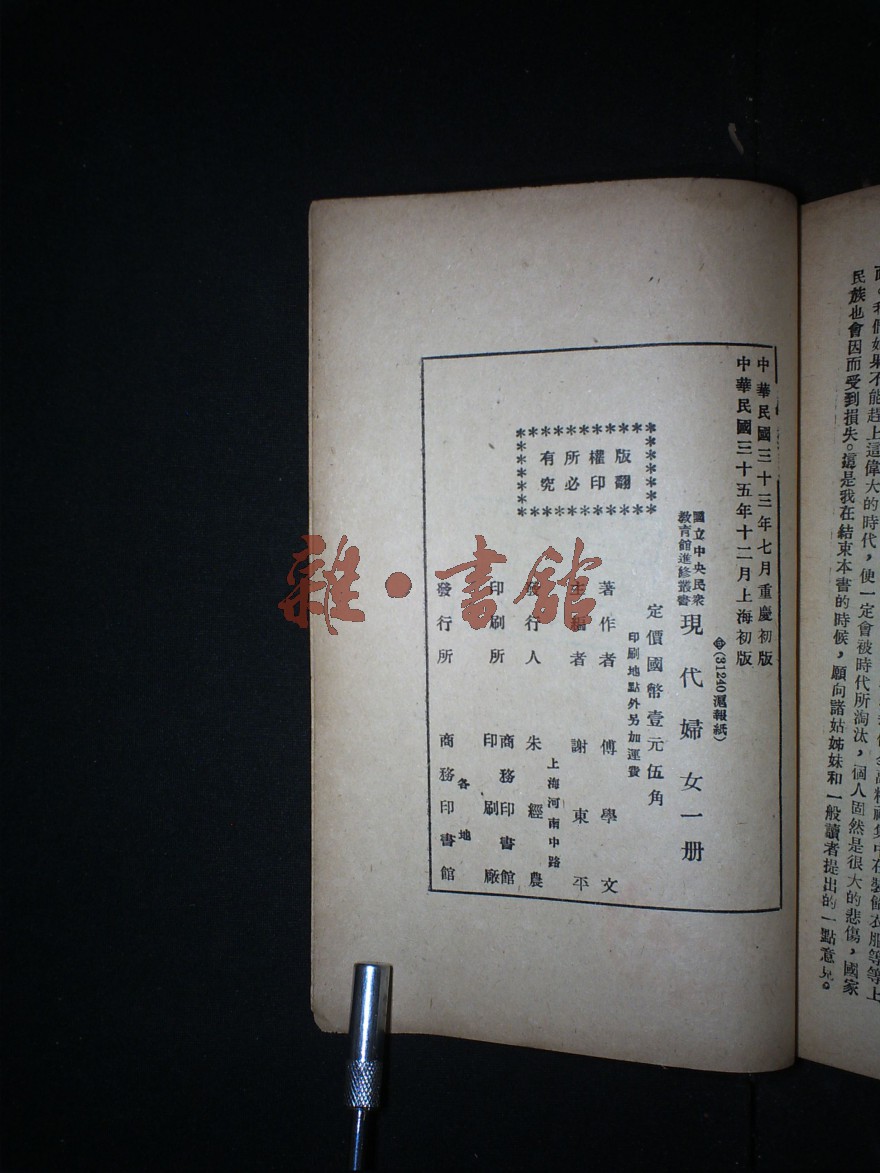 民族也會因而受到損失。這是我在結束本書的時候，願向諸姑姊妹和一般讀者提出的一點意見。
中華民國三十三年七月重慶初版
中華民國三十五年十二月上海初版
(31240滬報紙)
國立中央民衆
教育館進修叢書
現代婦女一册
定價國幣壹元伍角
印刷地點外另加運費
版權所有
翻印必究
著作者 傅學文
主編者 謝東平
上海河南中路
發行人 朱經農
印刷所 商務印書館
印刷廠
各地
發行所 商務印書館
雜·書館